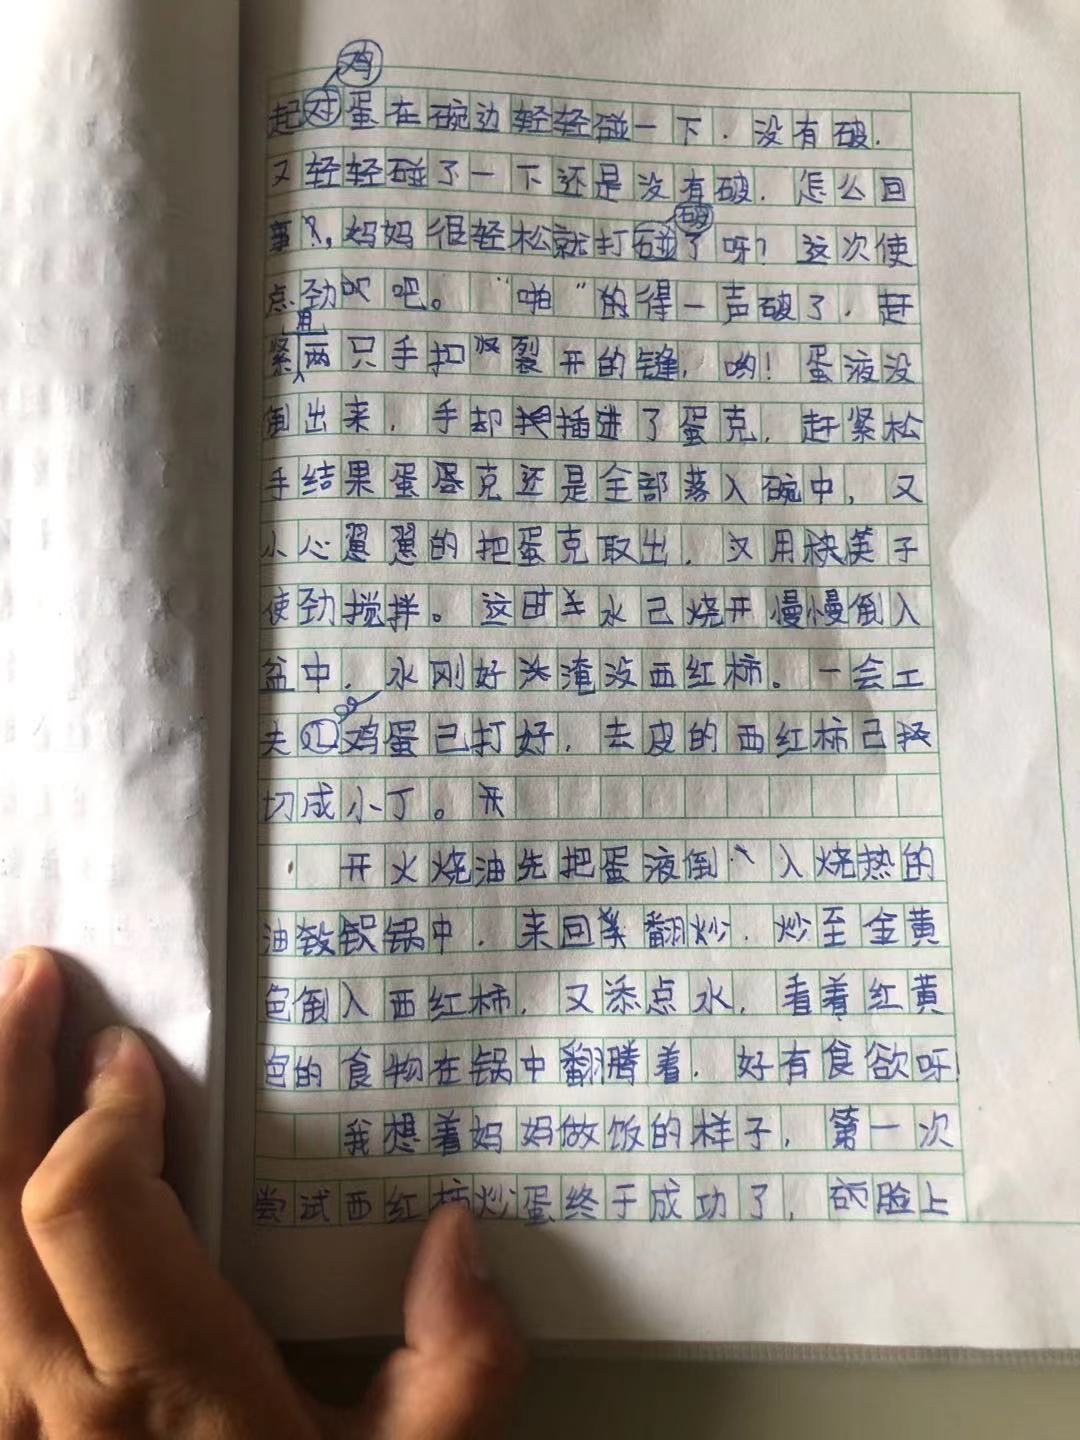 鸡
起对蛋在碗边轻轻碰一下.没有破.
又轻轻碰了一下还是没有破.怎么回
破
事?,妈妈很轻松就打碰了呀?这次使
点劲吧。“啪”的得一声破了.赶
用
紧两只手扣裂开的缝,哟!蛋液没
倒出来,手却插进了蛋克,赶紧松
手结果蛋蛋克还是全部落入碗中,又
小心翼翼的把蛋克取出,又用筷子
使劲搅拌。这时水己烧开慢慢倒入
盆中,水刚好淹没西红柿。一会工
夫鸡蛋己打好,去皮的西红柿己
切成小丁。开
开火烧油先把蛋液倒入烧热的
油锅中,来回翻炒.炒至金黄
色倒入西红柿,又添点水,看着红黄
色的食物在锅中翻腾着.好有食欲呀
我想着妈妈做饭的样子,第一次
尝试西红柿炒蛋终于成功了,脸上